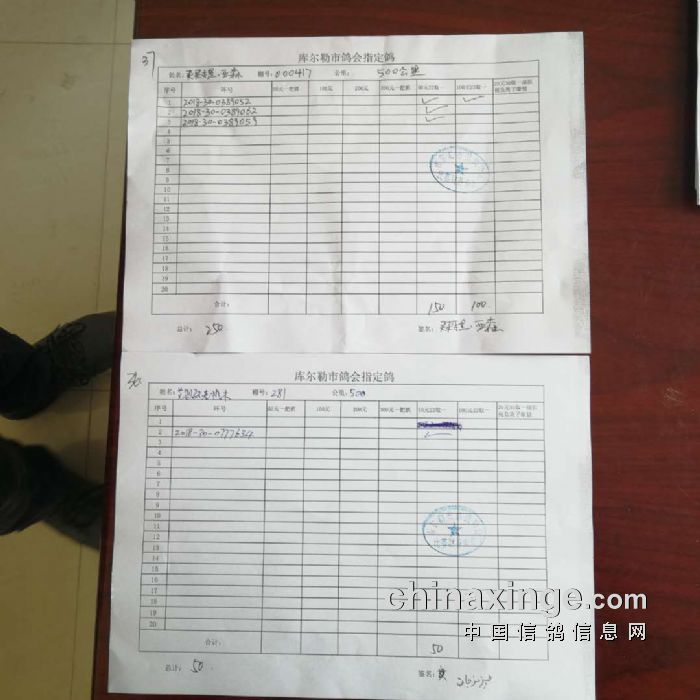 37
库尔勒市鸽会指定鸽
姓名: 亚森 棚号: 000417 公里: 500公里
序号 环号 50元一把抓 100元 200元 300元一把抓 50元22取一 100元22取一 20元50取一
1 2018-30-0389052 ✓ ✓
2 2018-30-0389062 ✓
3 2018-30-0389059 ✓
4
5
6
7
8
9
10
11
12
13
14
15
16
17
18
19
20
合计: 150 100
总计: 250 签名: 亚森
36
库尔勒市鸽会指定鸽
姓名: 棚号: 281 公里: 500
序号 环号 50元一把抓 100元 200元 300元一把抓 50元22取一 100元22取一 20元50取一
1
2 2018-30-0777634 ✓
3
4
5
6
7
8
9
10
11
12
13
14
15
16
17
18
19
20
合计: 50
总计: 50 签名:
chinaxinge.com
中国信鸽信息网